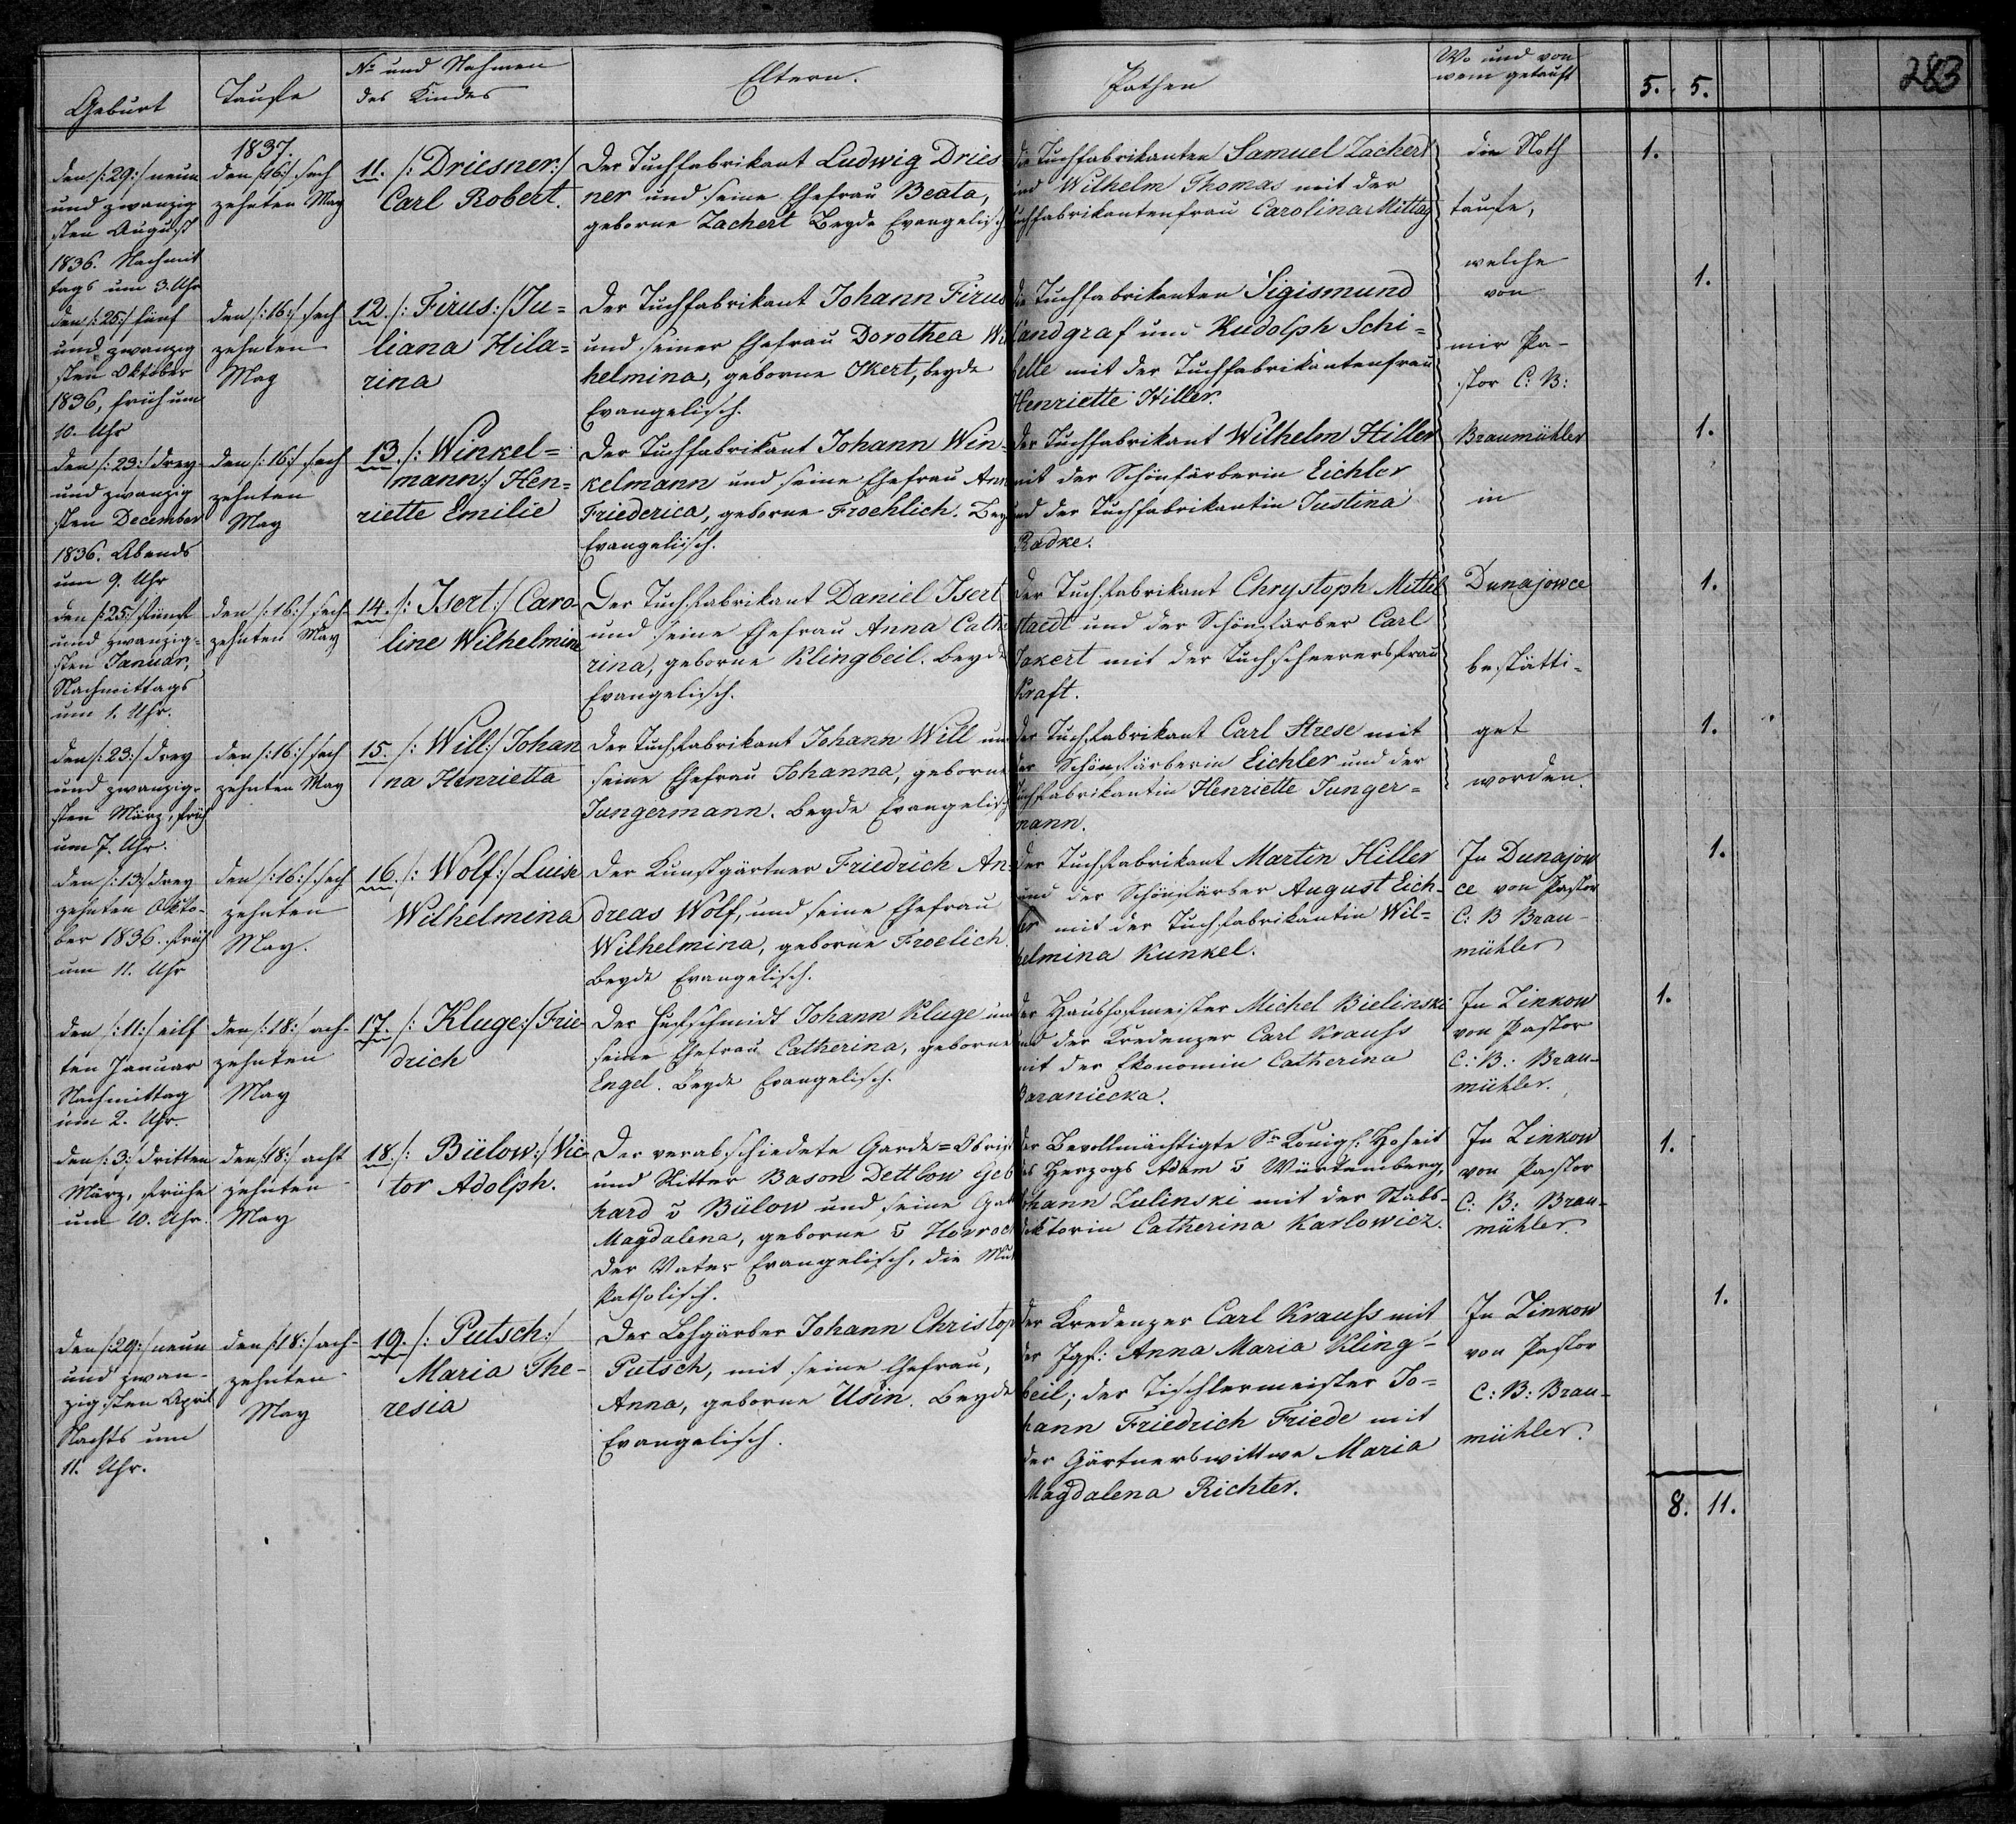 283
Geburt
Taufe
No und Nahmen
des Kindes
Eltern.
Pathen
Wo und von
wem getauft
5. 5.
1837.
den /:29:/ neun
und zwanzig
sten August
1836. Nachmit
tags um 3. Uhr
den /:16:/ sech
zehnten May
11. /: Driesner:/
Carl Robert.
Der Tuchfabrikant Ludwig Dries
ner und seine Ehefrau Beata,
geborne Zachert Beyde Evangelisch
die Tuchfabrikanten Samuel Zachert
und Wilhelm Thomas mit der
Tuchfabrikantenfrau Carolina Mittag
die Noth
taufe,
welche
von
mir Pa-
stor C: B:
Braumühler
in
Dunajowce
bestätti-
get
worden.
1.
den /:25:/ fünf
und zwanzig
sten Oktober
1836, früh um
10. Uhr
den /:16:/ sech
zehnten
May
12. /: Firus:/ Ju=
liana Hila=
rina
Der Tuchfabrikant Johann Firus
und seiner Ehefrau Dorothea Wil
helmina, geborne Ikert, beyde
Evangelisch.
die Tuchfabrikanten Sigismund
Landgraf und Rudolph Schi=
belle mit der Tuchfabrikantenfrau
Henriette Hiller.
1.
den /:23:/ drey
und zwanzig
sten December
1836. Abends
um 9. Uhr
den /:16:/ sech
zehnten
May
13. /: Winkel=
mann:/ Hen=
riette Emilie
Der Tuchfabrikant Johann Win-
kelmann und seine Ehefrau Ann
Friederica, geborne Froehlich. Bey
Evangelisch.
der Tuchfabrikant Wilhelm Hiller
mit der Schönfärberin Eichler
und der Tuchfabrikantin Justina
Radke.
1.
den /:25:/ fünf
und zwanzig-
sten Januar,
Nachmittags
um 1. Uhr.
den /:16:/ sech-
zehnten May
14. /: Isert:/ Caro-
line Wilhelmine
Der Tuchfabrikant Daniel Isert
und seine Ehefrau Anna Catha
rina, geborne Klingbeil. Beyde
Evangelisch.
Der Tuchfabrikant Chrystoph Mittel
staedt und der Schönfärber Carl
Jakert mit der Tuchscheerersfrau
Kraft.
1.
den /:23:/ drey
und zwanzig-
sten März, früh
um 7. Uhr.
den /:16:/ sech
zehnten May
15. /: Will:/ Johan
na Henrietta
Der Tuchfabrikant Johann Will und
seine Ehefrau Johanna, geborne
Jungermann. Beyde Evangelisch
der Tuchfabrikant Carl Strese mit
der Schönfärberin Eichler und der
Tuchfabrikantin Henriette Junger=
mann.
1.
den /:13:/ drey
zehnten Okto-
ber 1836. früh
um 11. Uhr
den /:16:/ sech
zehnten
May.
16. /: Wolf:/ Luise
Wilhelmina
Der Kunstgärtner Friedrich An-
dreas Wolf, und seine Ehefrau
Wilhelmina, geborne Froelich.
Beyde Evangelisch.
der Tuchfabrikant Martin Hiller
und der Schönfärber August Eich-
ler mit der Tuchfabrikantin Wil=
helmina Kunkel.
In Dunajow
ce von Pastor
C: B Brau-
mühler
1.
den /:11:/ eilf
ten Januar
Nachmittag
um 2. Uhr.
den /:18:/ ach-
zehnten
May
17. /: Kluge:/ Frie-
drich
Der Hufschmidt Johann Kluge und
seine Ehefrau Catherina, geborne
Engel. Beyde Evangelisch.
der Haushofmeister Michel Bielinski
und der Kredenzer Carl Krauss
mit der Ekonomin Catherina
Baraniecka.
In Zinkow
von Pastor
C: B: Brau-
mühler.
1.
den /:3:/ dritten
März, frühe
um 10. Uhr.
den /:18:/ acht
zehnten
May
18. /: Bülow:/ Vic-
tor Adolph.
Der verabschiedete Garde=Obrist
und Ritter Bason Dettlow Geb
hard v Bülow und seine Gat
Magdalena, geborne v Horroch
der Vater Evangelisch, die Mut
Katholisch.
der Bevollmächtigte Sr Königl. Hoheit
des Herzogs Adam v Würtemberg,
Johann Zulinski mit der Stabs-
doktorin Catherina Karlowicz.
In Zinkow
von Pastor
C: B: Brau-
mühler.
1.
den /:29:/ neun
und zwan-
zigsten April
Nachts um
11. Uhr.
den /:18:/ ach-
zehnten
May
19. /: Putsch:/
Maria The-
resia
Der Lohgärber Johann Christop
Putsch, mit seine Ehefrau,
Anna, geborne Usin. Beyde
Evangelisch.
der Kredenzer Carl Krauss mit
der Jgf: Anna Maria Kling-
beil; der Tischlermeister Jo=
hann Friedrich Friede mit
der Gärtnerswittwe Maria
Magdalena Richter.
In Zinkow
von Pastor
C: B: Brau-
mühler.
1.
8. 11.